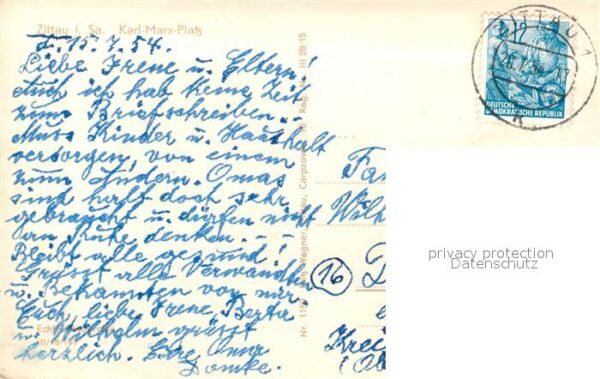 Zittau i. Sa. Karl-Marx-Platz
Z. 15.7.54.
Liebe Irene u. Eltern!
Auch ich hab keine Zeit
zum Briefschreiben..
Muss Kinder u. Haushalt
versorgen, von einem
zum Andern. Omas
sind halt doch sehr
gebraucht u. dürfen nicht
an Ruhe denken. --
Bleibt alle gesund!
Grüsst alle Verwandte
u. Bekannten von mir.
Euch, liebe Irene, Berta
u. Wilhelm grüsst
herzlich. Eure Oma
Domke.
Echt
Nr. 115 Wagner Carpzov Reg. III 28 15
ZITTAU 1
12
DEUTSCHE
DEMOKRATISCHE REPUBLIK
Fa
Wilh
16
D
Krei
(Ob
privacy protection
Datenschutz